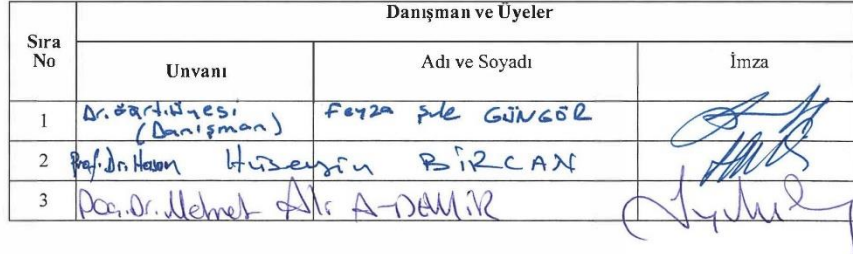 Danışman ve Üyeler
Sıra No Unvanı Adı ve Soyadı İmza
1 Dr. Öğrt. Üyesi (Danışman) Feyza Şule GÜNGÖR
2 Prof. Dr. Hasan Hüseyin BİRCAN
3 Doç. Dr. Mehmet Ali AYDEMİR